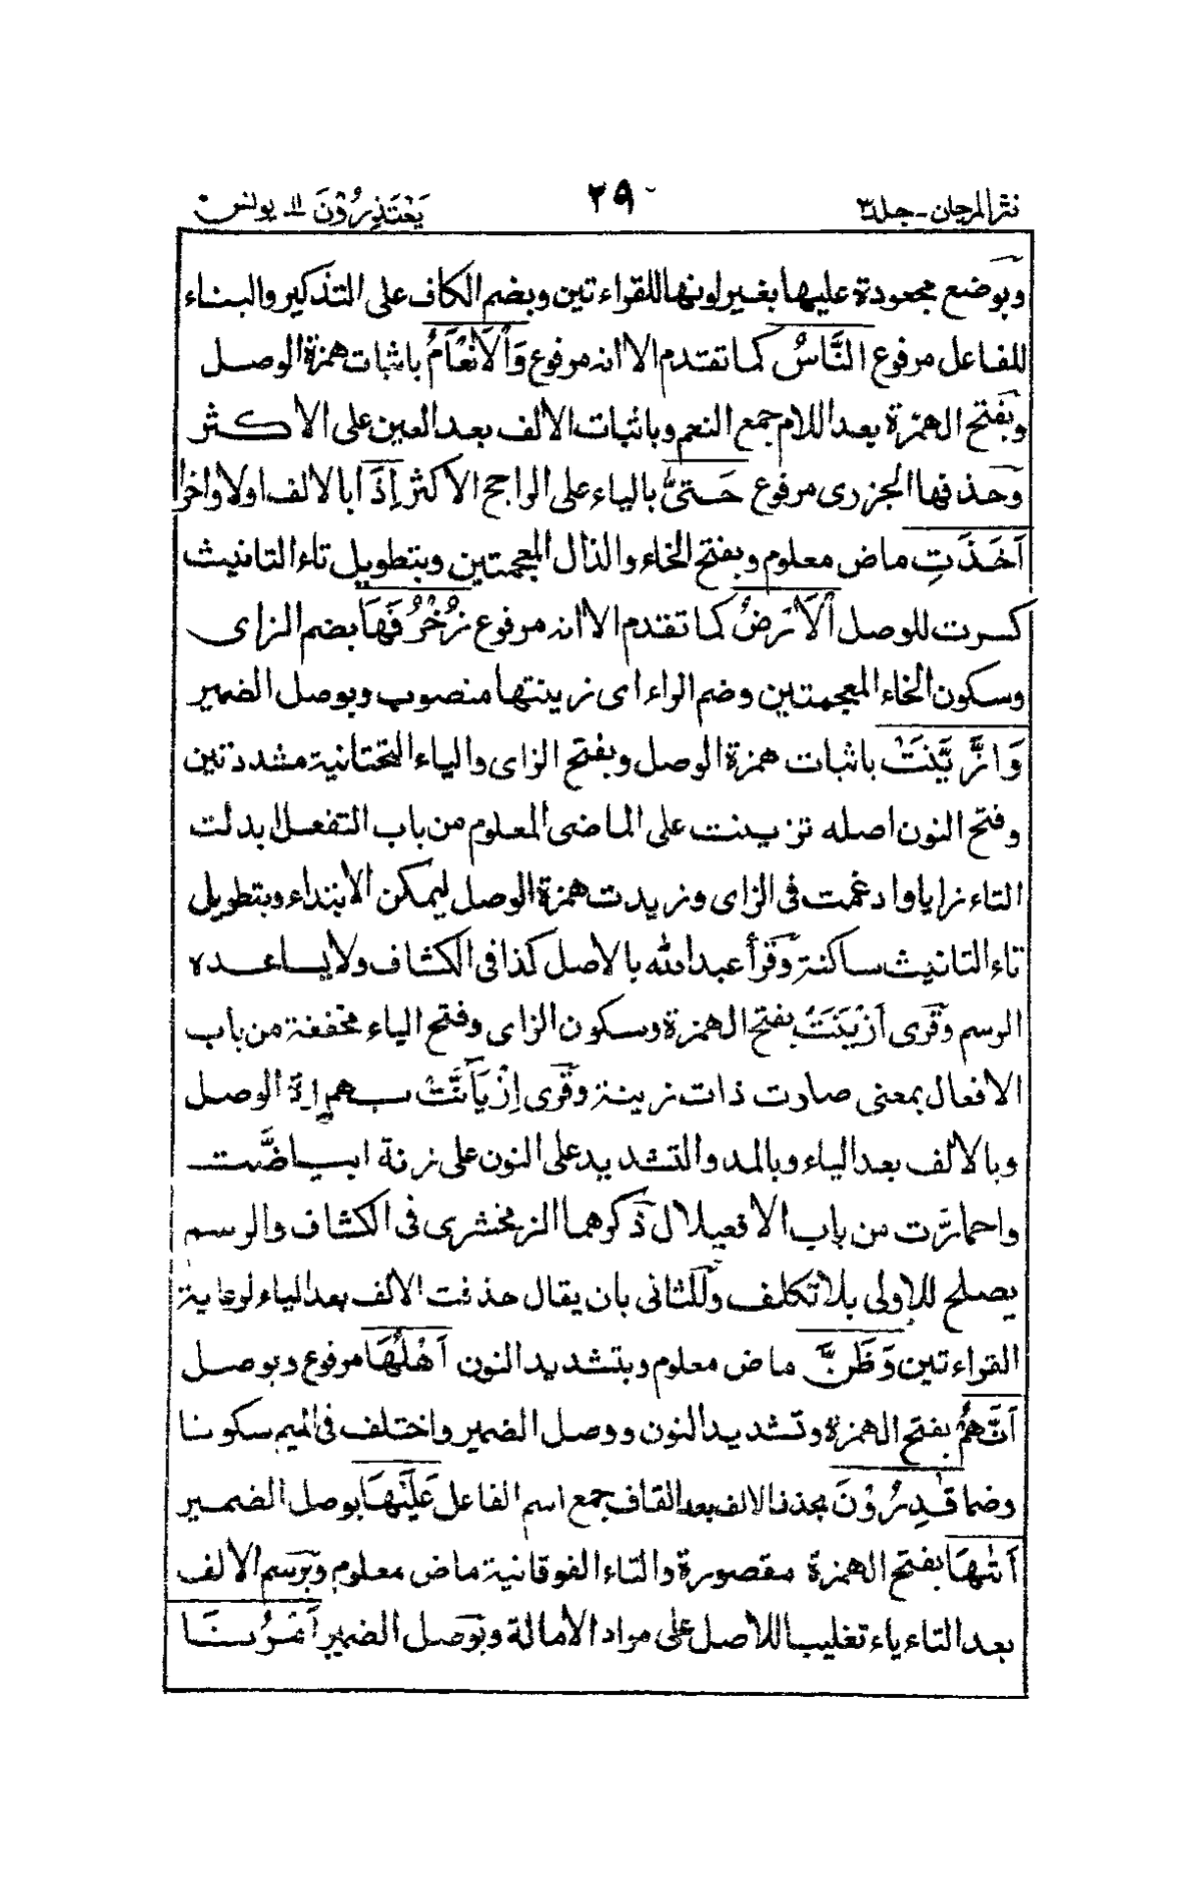 نثر المرجان - جلد ٣
٢٩
يَعْتَذِرُوْنَ ١١ يونس
وبوضع مجعودة عليها بغير لونها للقراءتين وبضم الكاف على التذكير والبناء
للفاعل مرفوع النَّاسُ كما تقدم الا انه مرفوع وَالْاَنْعَامُ باثبات همزة الوصل
وبفتح الهمزة بعد اللام جمع النعم وباثبات الالف بعد العين على الاكثر
وحذفها الجزرى مرفوع حَتّٰى بالياء على الراجح الاكثر اِذَا بالالف اولا واخرا
اَخَذَتِ ماض معلوم وبفتح الخاء والذال المعجمتين وبتطويل تاء التانيث
كسرت للوصل الْاَرْضُ كما تقدم الا انه مرفوع زُخْرُفَهَا بضم الزاى
وسكون الخاء المعجمتين وضم الراء اى زينتها منصوب وبوصل الضمير
وَازَّيَّنَتْ باثبات همزة الوصل وبفتح الزاى والياء التحتانية مشددتين
وفتح النون اصله تزينت على الماضى المعلوم من باب التفعل ابدلت
التاء زايا وادغمت فى الزاى وزيدت همزة الوصل ليمكن الابتداء وبتطويل
تاء التانيث ساكنة وقرأ عبد الله بالاصل كذا فى الكشاف ولا يساعده
الرسم وقرى اَزْيَنَتْ بفتح الهمزة وسكون الزاى وفتح الياء مخففة من باب
الافعال بمعنى صارت ذات زينة وقرى اِزْيَاَنَّتْ بهمزة الوصل
وبالالف بعد الياء وبالمد والتشديد على النون على زنة ابياضَّت
واحمارّت من باب الافعيلال ذكرهما الزمخشرى فى الكشاف والرسم
يصلح للاولى بلا تكلف وللثانى بان يقال حذفت الالف بعد الياء لرعاية
القراءتين وَظَنَّ ماض معلوم وبتشديد النون اَهْلُهَا مرفوع وبوصل
اَنَّهُمْ بفتح الهمزة وتشديد النون ووصل الضمير واختلف فى الميم سكونا
وضما قٰدِرُوْنَ بحذف الالف بعد القاف جمع اسم الفاعل عَلَيْهَا بوصل الضمير
اَتٰىهَا بفتح الهمزة مقصورة والتاء الفوقانية ماض معلوم وبرسم الالف
بعد التاء ياء تغليبا للاصل على مراد الامالة وبوصل الضمير اَمْرُنَا